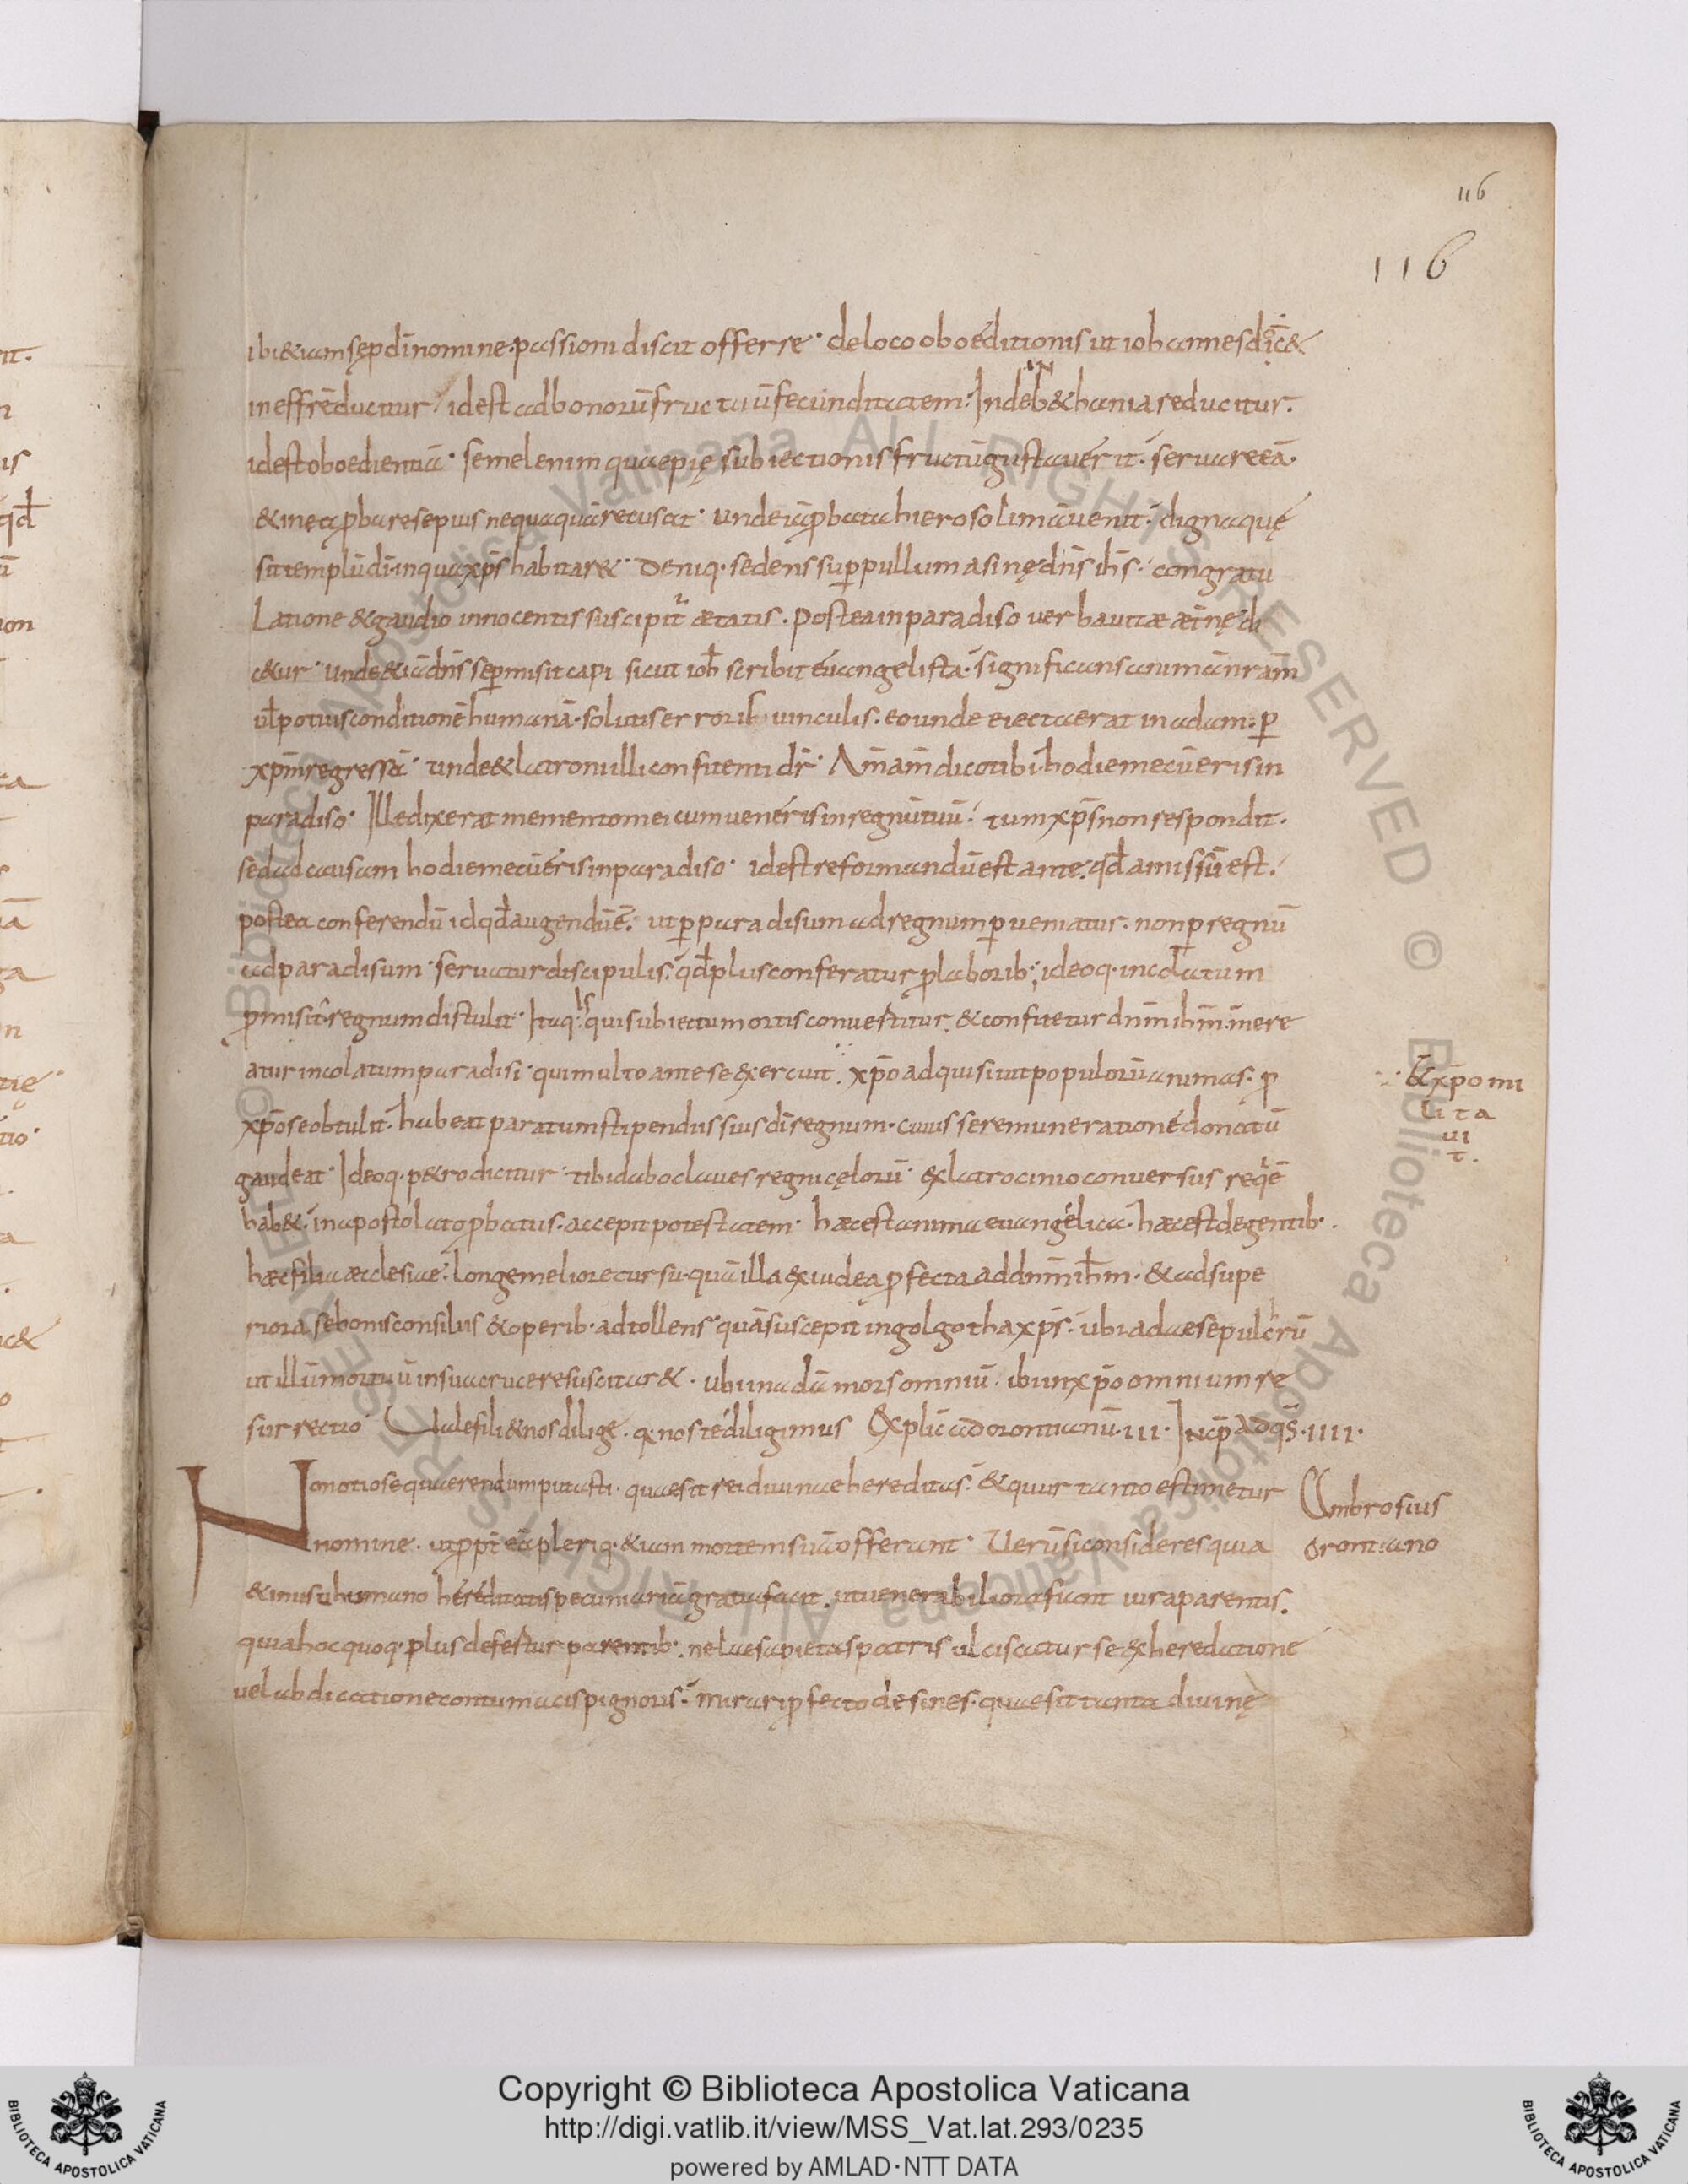 116
116
ibi & iam se p dī nomine passioni discit offerre · de loco oboeditionis ut iohannes dic&
in effrē ducitur id est ad bonorū fructuū fecunditatem. Inde in b&hania reducitur.
id est oboedientiā · semel enim quae pię subiectionis fructū gustaverit · servare eā
& in ea pbare sepius nequaquā recusat · unde iā pbata hierosolimā venit · dignaquę
sit templū dī in qua xp̄s habitar& · Deniq · sedens sup pullum asinę dn̄s ih̄s · congratu
latione & gaudio innocentis suscipit ætatis · postea in paradiso verba vitæ ætnę do
c&ur · unde & iā dn̄s se pmisit capi sicut ioh scribit evangelista · significans animā nr̄am
ul potius conditionē humanā · solutis errorib vinculis · eo unde eiecta erat in adam · p
xp̄m regressā · unde & latroni illi confitenti dr̄ · Am̄ am̄ dico tibi hodie mecū eris in
paradiso · Ille dixerat memento mei cum veneris in regnū tuū · tum xp̄s non respondit.
sed ad causam hodie mecū eris in paradiso · id est reformandū est ante · qđ amissū est ·
postea conferendū id qđ augendū ē · ut p paradisum ad regnum pveniatur · non p regnū
ad paradisum · servatur discipulis · qđ plus conferatur p laborib; ideoq · incolatum
pmisit · regnum distulit · Itaq · is qui sub ictu mortis convertitur · & confitetur dnm̄ ihm̄ · mere
atur incolatum paradisi · qui multo ante se exercuit · xp̄o adquisivit populorū animas · p
xp̄o se obtulit · habeat paratum stipendiis suis dī regnum · cuius se remuneratione donatū
gaudeat · Ideoq · p&ro dicitur · tibi dabo claves regni cęlorū · ex latrocinio conversus reqiē
hab& · in apostolato pbatus · accepit potestatem · haec est anima evangelica · haec est de gentib ·
haec filia æcclesiae · longe meliore cursu · quā illa ex iudea pfecta ad dnm̄ ihm̄ · & ad supe
riora se bonis consiliis & operib · adtollens · quā suscepit in golgotha xp̄s · ubi adae sepulcrū
ut illū mortuū in sua cruce resuscitar& · ubi in adā mors omniū · ibi in xp̄o omnium re
surrectio Vale fili & nos dilige · q · nos te diligimus Explic ad orontianū · III · Incp ad qs · IIII ·
Non otiose quaerendum putasti · quae sit rei divinae hereditas · & quur tanto estimetur
nomine · ut ppt eā pleriq · & iam mortem suā offerant · Verū si consideres quia
& in usu humano hereditatis pecuniariā gratia facit · ut venerabiliora fiant iura parentis.
quia hoc quoq · plus defertur parentib · ne laesa pietas patris ulciscatur se exheredatione
vel abdicatione contumacis pignoris · mirari pfecto desines · quae sit tanta divinę
& xp̄o mi
lita
vi
t.
Ambrosius
orontiano
Copyright © Biblioteca Apostolica Vaticana
http://digi.vatlib.it/view/MSS_Vat.lat.293/0235
powered by AMLAD·NTT DATA
BIBLIOTECA APOSTOLICA VATICANA
BIBLIOTECA APOSTOLICA VATICANA